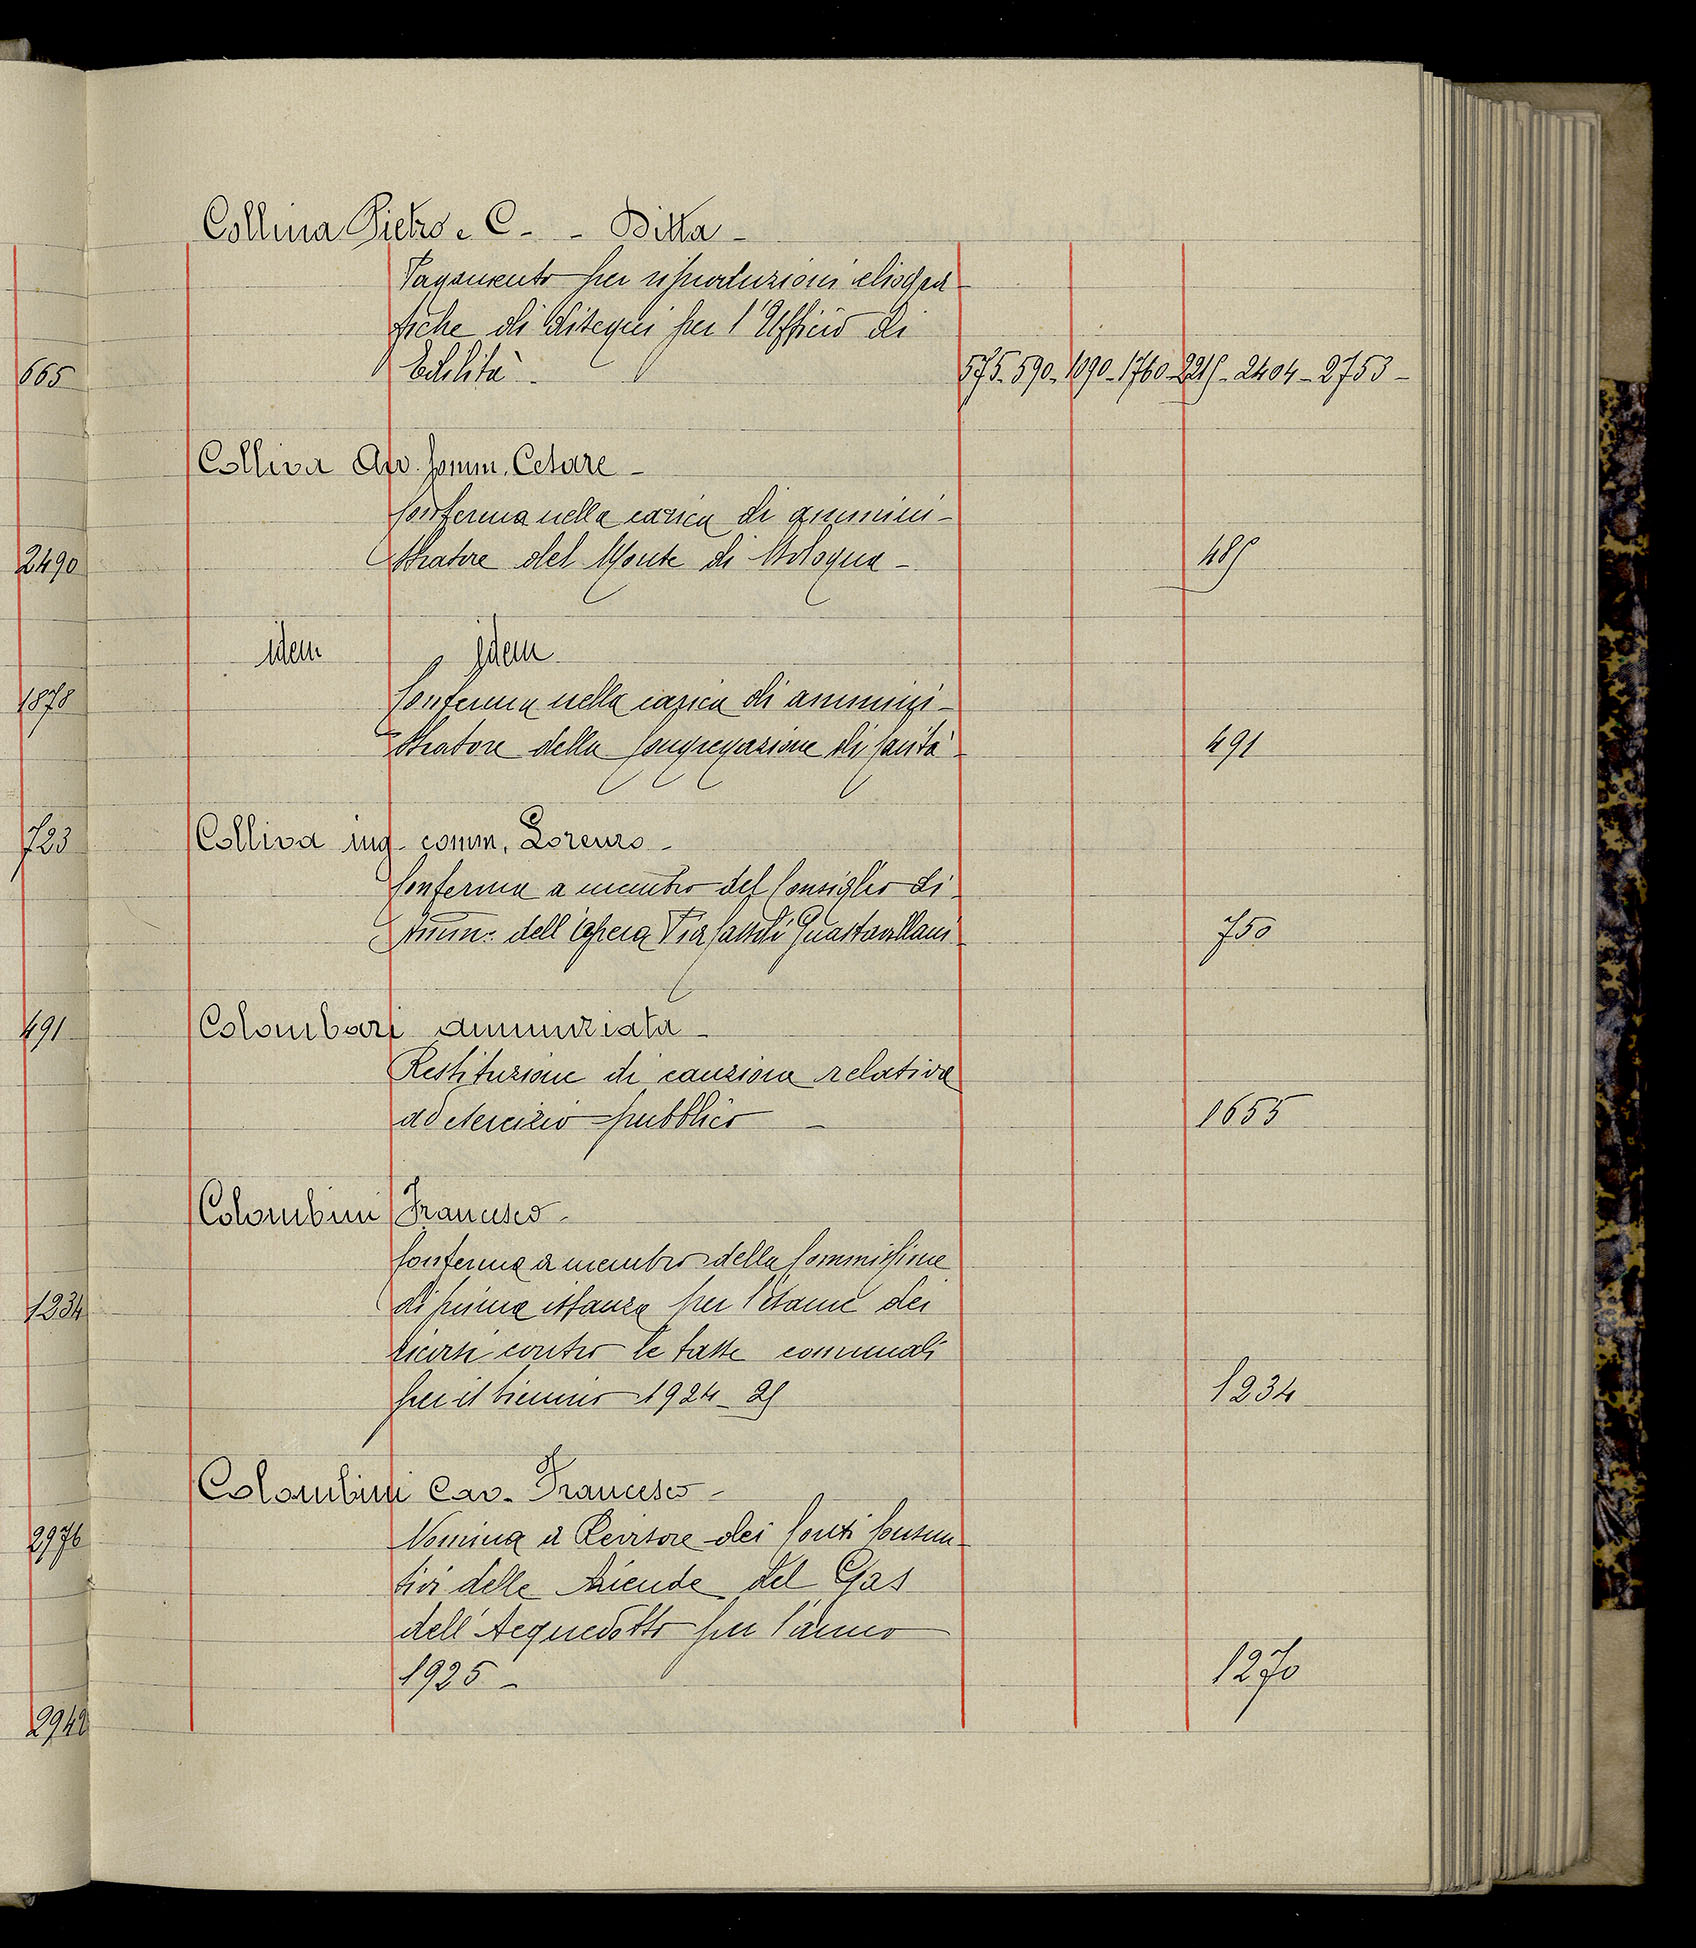 665
2490
1878
723
491
1234
2976
2942
Collina Pietro e C. - Ditta -
Pagamento per riproduzioni eliogra-
fiche di disegni per l'Ufficio di
Edilità - 575-590-1090-1760-2215-2404-2753-
Colliva Avv. Comm. Cesare -
Conferma nella carica di ammini-
stratore del Monte di Bologna - 485
idem idem
Conferma nella carica di ammini-
stratore della Congregazione di Carità - 491
Colliva ing. comm. Lorenzo -
Conferma a membro del Consiglio di
Amm.ne dell'Opera Pia Guastavillani 750
Colombari Annunziata -
Restituzione di cauzione relativa
ad esercizio pubblico - 1655
Colombini Francesco -
Conferma a membro della Commissione
di prima istanza per l'esame dei
ricorsi contro le tasse comunali
per il biennio 1924-25 1234
Colombini Cav. Francesco -
Nomina a Revisore dei Conti Consun-
tivi delle Aziende del Gas
dell'Acquedotto per l'anno
1925 - 1270